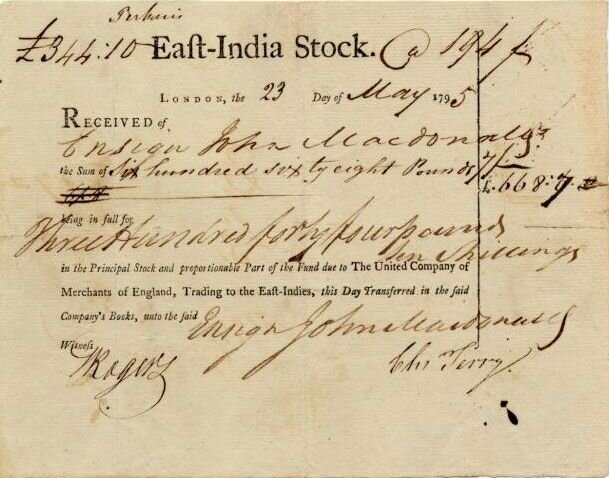 Perkins
£344:10 Eaſt-India Stock. @ 194
London, the 23 Day of May 1795
Received of
Ensign John Macdonald
the Sum of Six hundred sixty eight Pounds 7/
£.668:7.
being in full for
Three Hundred forty four pounds
ten Shillings
in the Principal Stock and proportionable Part of the Fund due to The United Company of
Merchants of England, Trading to the East-Indies, this Day Transferred in the said
Company's Books, unto the said Ensign John Macdonald
Witness
Rogers
Chr Terry